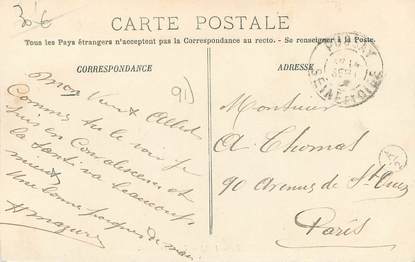 30/6
CARTE POSTALE
Tous les Pays étrangers n'acceptent pas la Correspondance au recto. — Se renseigner à la Poste.
CORRESPONDANCE
ADRESSE
SEINE ET OISE
91
Mon Vieux Albert
Comme tu le vois je
suis en Convalescence et
la santé va beaucoup
mieux
Une bonne poignée de main
Monsieur
A Thomas
90 Avenue de St Ouen
Paris